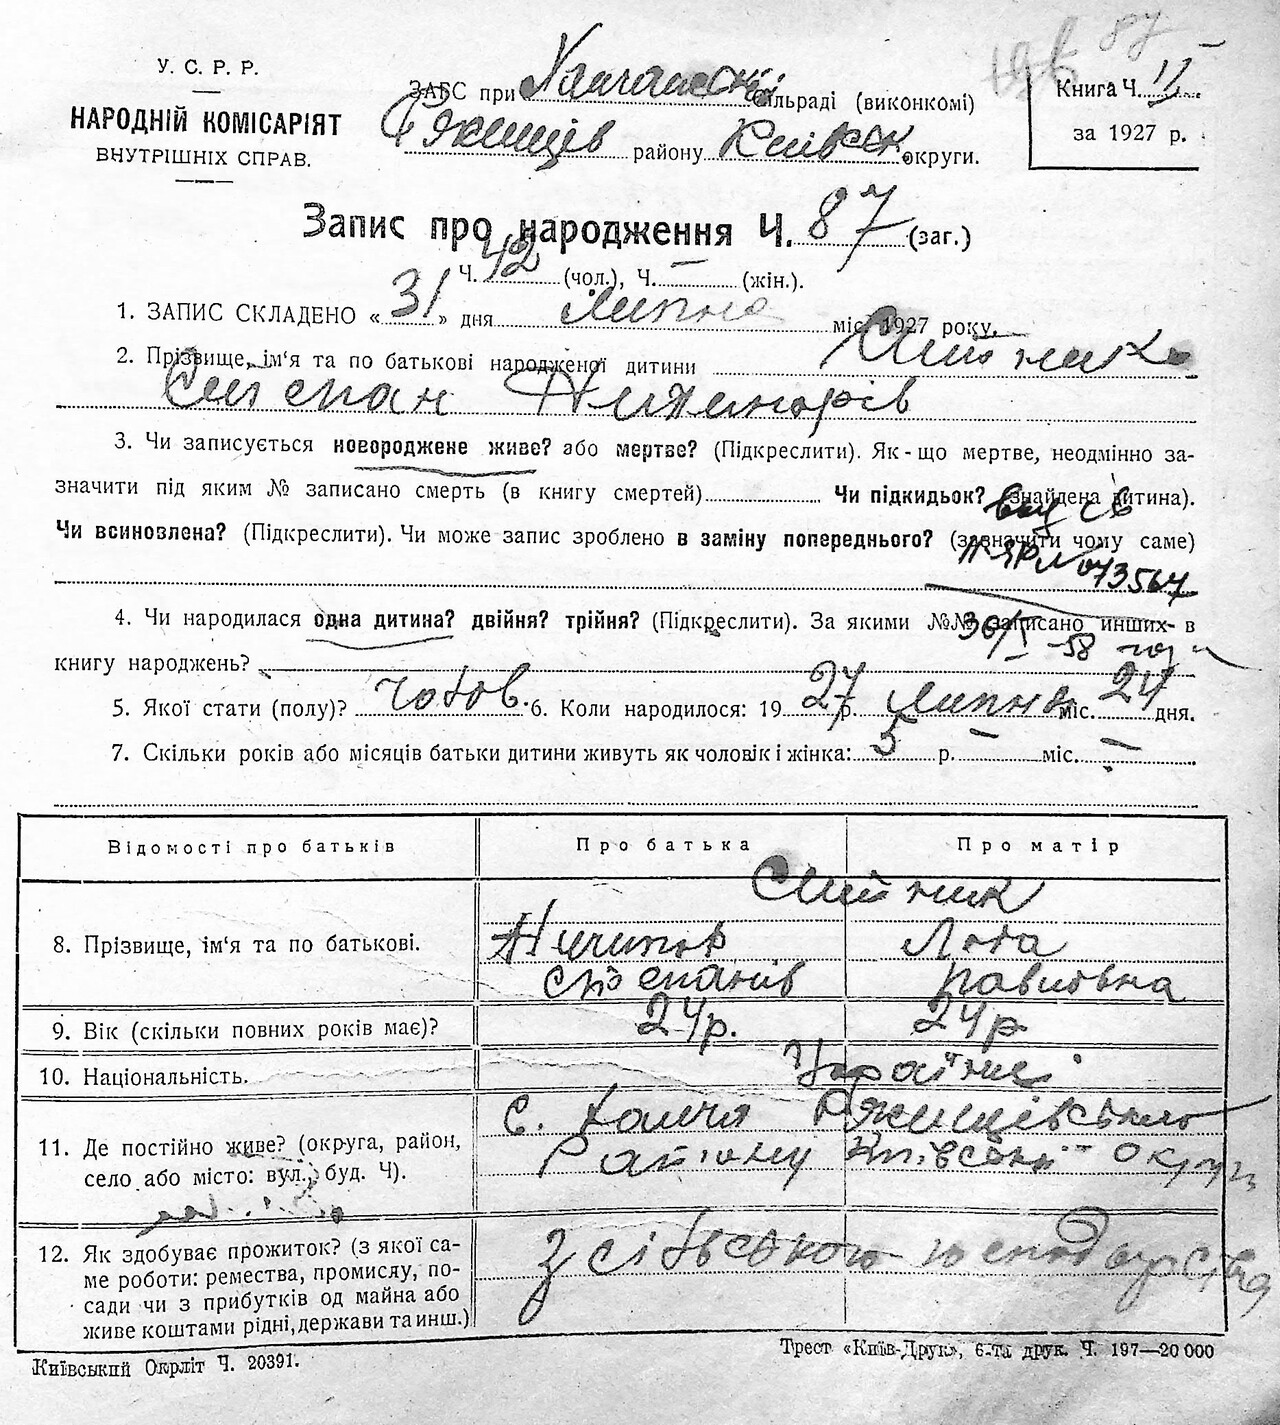 У. С. Р. Р.
НАРОДНІЙ КОМІСАРІЯТ
ВНУТРІШНІХ СПРАВ.
ЗАГС при сільраді (виконкомі)
Ржищів району Київськ округи.
87
Книга Ч. II
за 1927 р.
Запис про народження Ч. 87 (заг.)
Ч. 42 (чол.), Ч. – (жін.).
1. ЗАПИС СКЛАДЕНО «31» дня Липня міс. 1927 року.
2. Прізвище, ім'я та по батькові народженої дитини Ситник
Степан Ничипорів
3. Чи записується новороджене живе? або мертве? (Підкреслити). Як-що мертве, неодмінно за-
значити під яким № записано смерть (в книгу смертей) Чи підкидьок? (знайдена дитина).
Чи всиновлена? (Підкреслити). Чи може запис зроблено в заміну попереднього? (зазначити чому саме)
4. Чи народилася одна дитина? двійня? трійня? (Підкреслити). За якими №№ записано инших в
книгу народжень?
5. Якої стати (полу)? чолов. 6. Коли народилося: 1927 р. Липня міс. 24 дня.
7. Скільки років або місяців батьки дитини живуть як чоловік і жінка: 5 р. – міс. –
Відомості про батьків Про батька Про матір
Ситник
8. Прізвище, ім'я та по батькові. Ничипор
Степанів Павлівна
9. Вік (скільки повних років має)? 24 р. 24 р
10. Національність. Українці
11. Де постійно живе? (округа, район, село або місто: вул., буд. Ч). с. Ржищівського
Району Київської Округи
12. Як здобуває прожиток? (з якої са-
ме роботи: ремества, промислу, по-
сади чи з прибутків од майна або
живе коштами рідні, держави та инш.)
З сільського господарства
Київський Окрліт Ч. 20391.
Трест «Київ-Друк», 6-та друк. Ч. 197—20 000